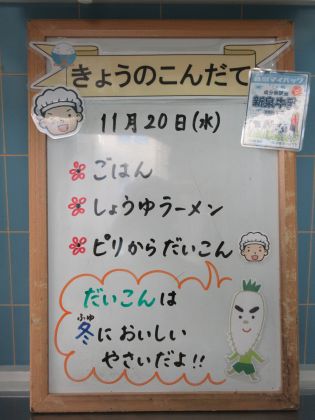 きょうのこんだて
11月20日(水)
ごはん
しょうゆラーメン
ピリからだいこん
だいこんは
ふゆ
冬においしい
やさいだよ!!